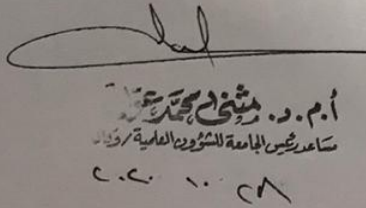 أ.م.د. مثنى محمد
مساعد رئيس الجامعة للشؤون العلمية / وكالة
٢٨ ١٠ ٢٠٢٠